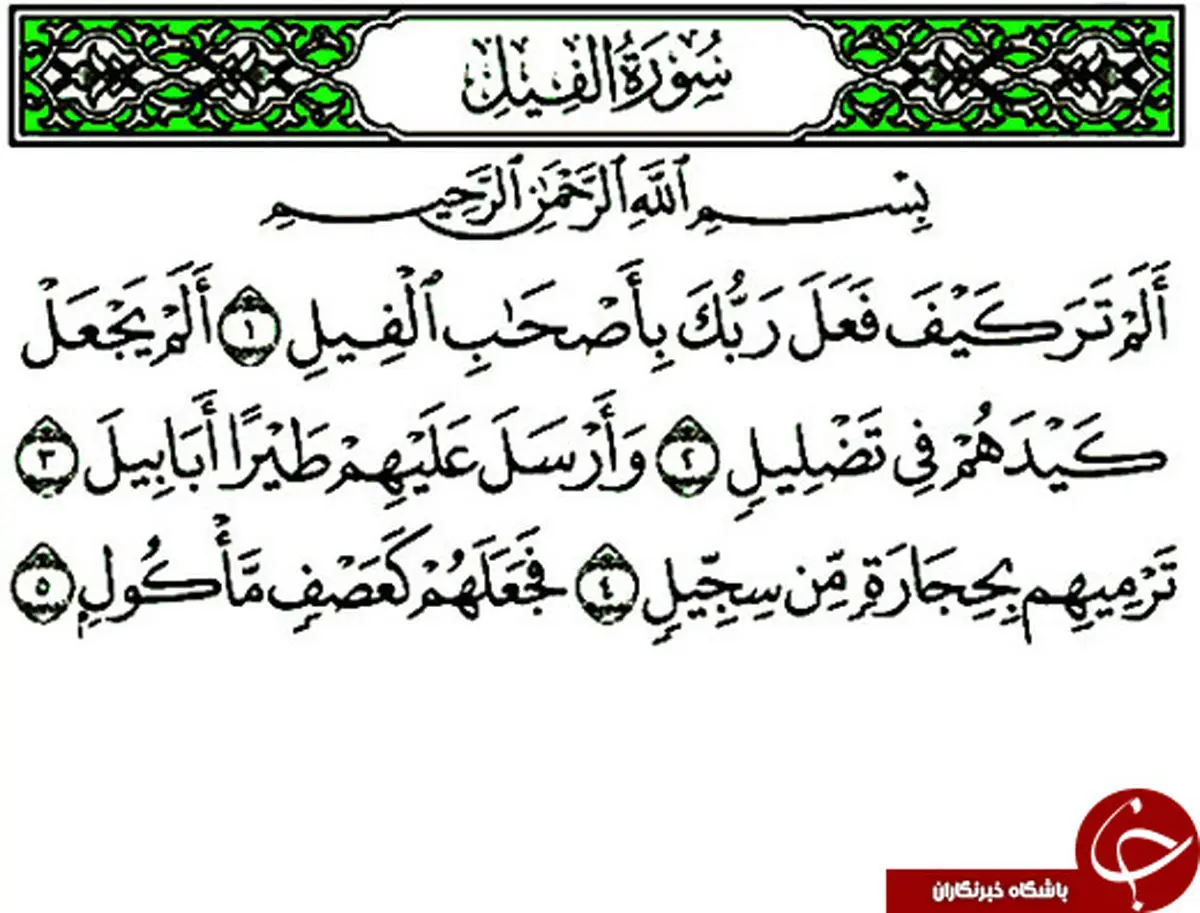 سُورَةُ الْفِيلِ
بِسْمِ ٱللَّهِ ٱلرَّحْمَٰنِ ٱلرَّحِيمِ
أَلَمْ تَرَ كَيْفَ فَعَلَ رَبُّكَ بِأَصْحَٰبِ ٱلْفِيلِ ١ أَلَمْ يَجْعَلْ
كَيْدَهُمْ فِي تَضْلِيلٍ ٢ وَأَرْسَلَ عَلَيْهِمْ طَيْرًا أَبَابِيلَ ٣
تَرْمِيهِم بِحِجَارَةٍ مِّن سِجِّيلٍ ٤ فَجَعَلَهُمْ كَعَصْفٍ مَّأْكُولٍ ٥
باشگاه خبرنگاران